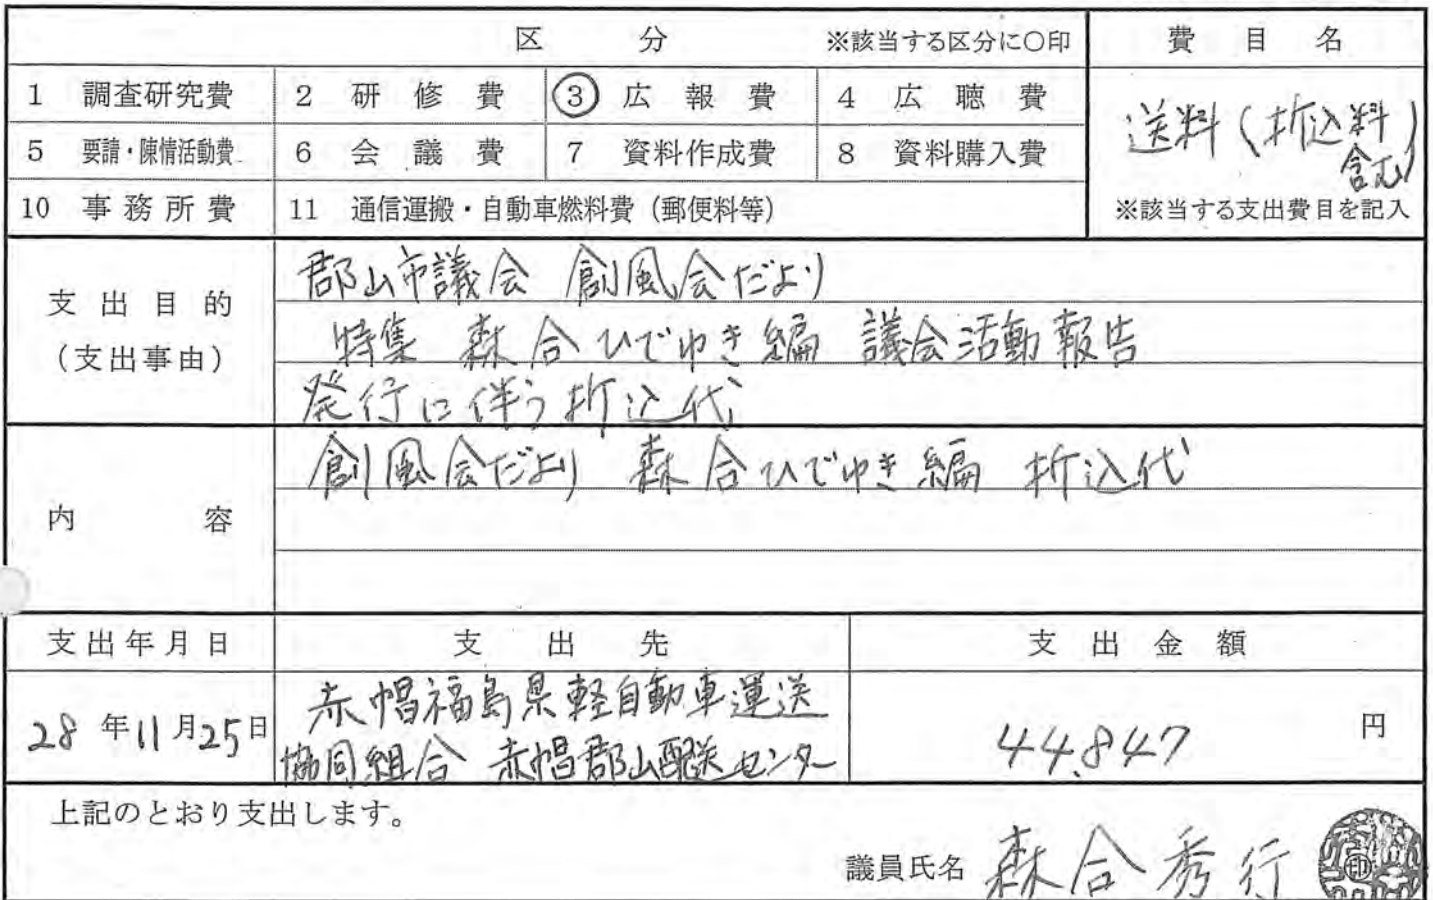 区 分 ※該当する区分に〇印 費 目 名
1 調査研究費 2 研 修 費 ③ 広 報 費 4 広 聴 費
送料(折込料含む)
5 要請・陳情活動費 6 会 議 費 7 資料作成費 8 資料購入費
10 事 務 所 費 11 通信運搬・自動車燃料費(郵便料等) ※該当する支出費目を記入
支 出 目 的
(支出事由)
郡山市議会 創風会だより
特集 森合ひでゆき編 議会活動報告
発行に伴う折込代
内 容
創風会だより 森合ひでゆき編 折込代
支出年月日 支 出 先 支 出 金 額
28 年 11 月 25 日
赤帽福島県軽自動車運送
協同組合 赤帽郡山配送センター
44,847 円
上記のとおり支出します。
議員氏名 森合秀行 印